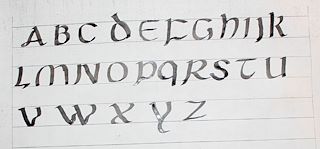 A B C D E F G H I J K
L M N O P Q R S T U
V W X Y Z